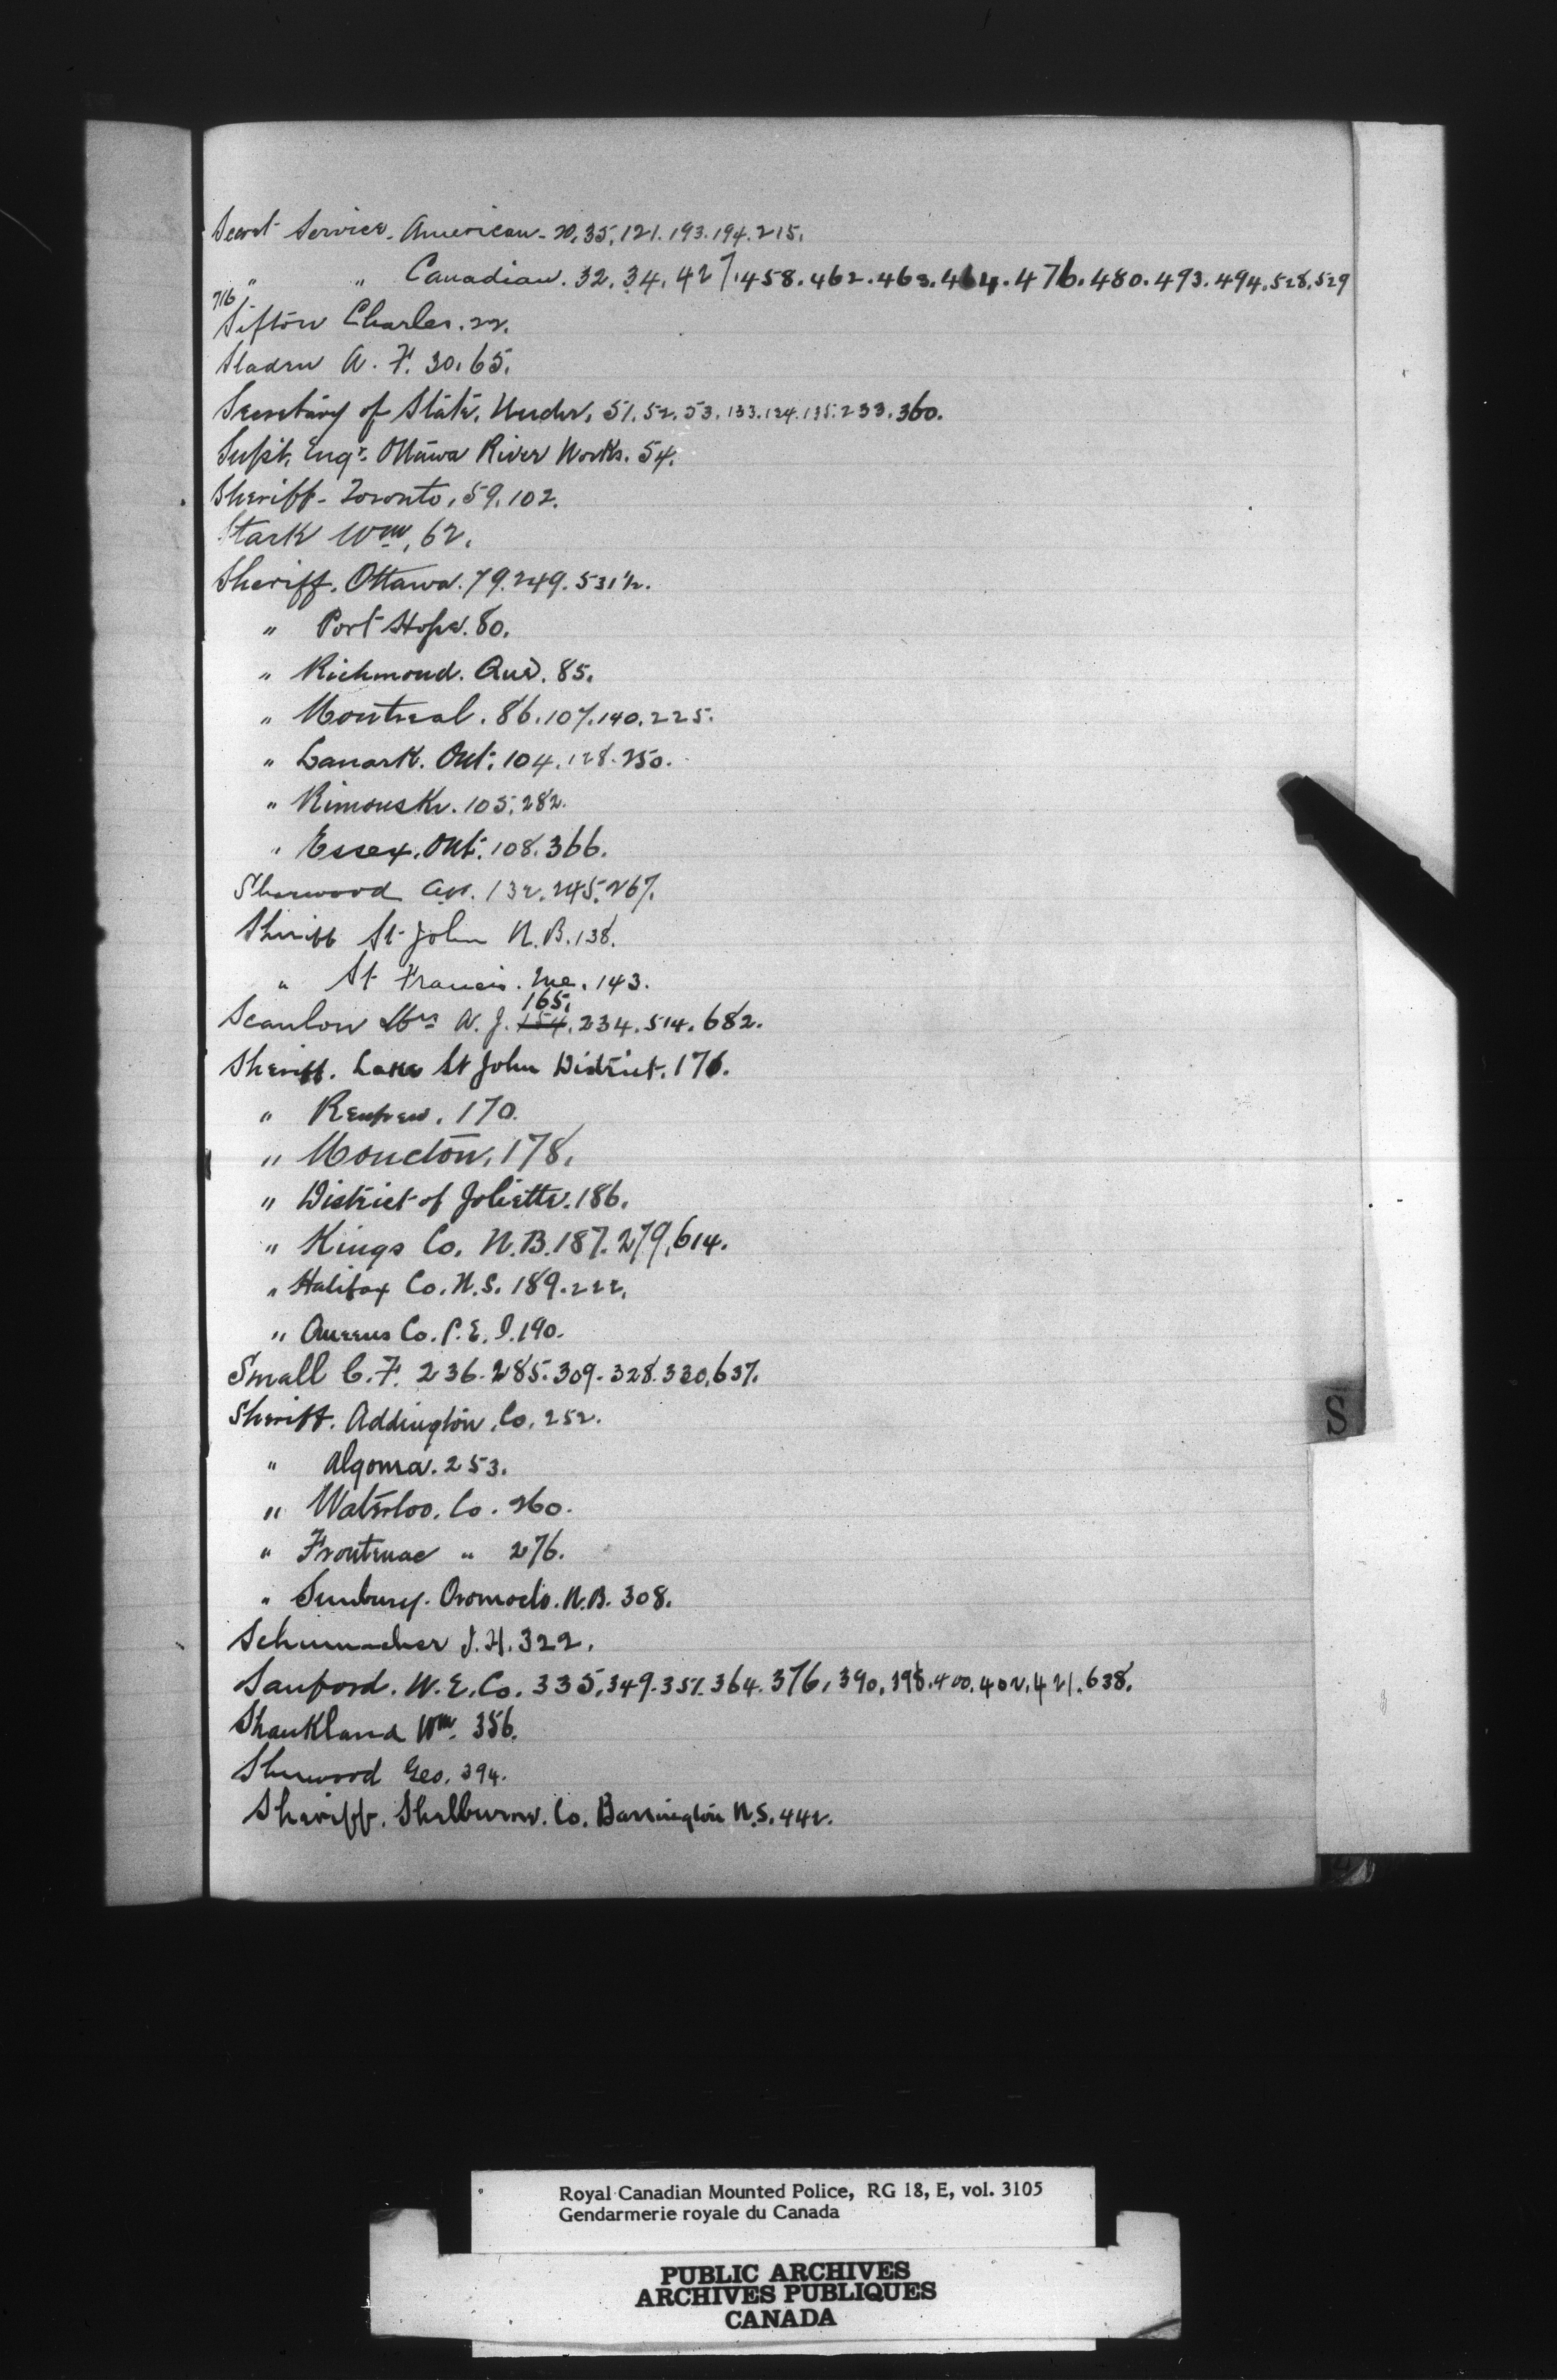 Secret Service. American. 20, 35, 121. 193. 194. 215.
" " Canadian. 32. 34. 427. 458. 462. 463. 464. 476. 480. 493. 494. 528. 529
716
Sifton Charles. 22.
Sladen A. F. 30. 65.
Secretary of State, Under, 51. 52. 53. 133. 134. 135. 233. 360.
Supt. Engr. Ottawa River Works. 54.
Sheriff - Toronto, 59. 102.
Stark Wm, 62.
Sheriff. Ottawa. 79. 249. 531½.
" Port Hope. 80.
" Richmond. Que. 85.
" Montreal. 86. 107. 140. 225.
" Lanark. Ont. 104. 128. 250.
" Rimouski. 105. 282.
" Essex. Ont. 108. 366.
Sherwood A.P. 132. 245. 267.
Sheriff St John N.B. 138.
" St Francis. 143.
165.
Scanlon Mrs A. J. 154. 234. 514. 682.
Sheriff. Lake St John District. 176.
" Renfrew. 170.
" Moncton. 178.
" District of Joliette. 186.
" Kings Co. N.B. 187. 279. 614.
" Halifax Co. N.S. 189. 222.
" Queens Co. P.E.I. 190.
Small C. F. 236. 285. 309. 328. 330. 637.
Sheriff. Addington. Co. 252.
" Algoma. 253.
" Waterloo. Co. 260.
" Frontenac " 276.
" Sunbury. Oromocto. N.B. 308.
Schumacher J. H. 322.
Sanford. W. E. Co. 335. 349. 357. 364. 376. 390. 398. 400. 402. 421. 638.
Shankland Wm. 356.
Sherwood Geo. 394.
Sheriff. Shelburne. Co. Barrington N.S. 442.
S
Royal Canadian Mounted Police, RG 18, E, vol. 3105
Gendarmerie royale du Canada
PUBLIC ARCHIVES
ARCHIVES PUBLIQUES
CANADA